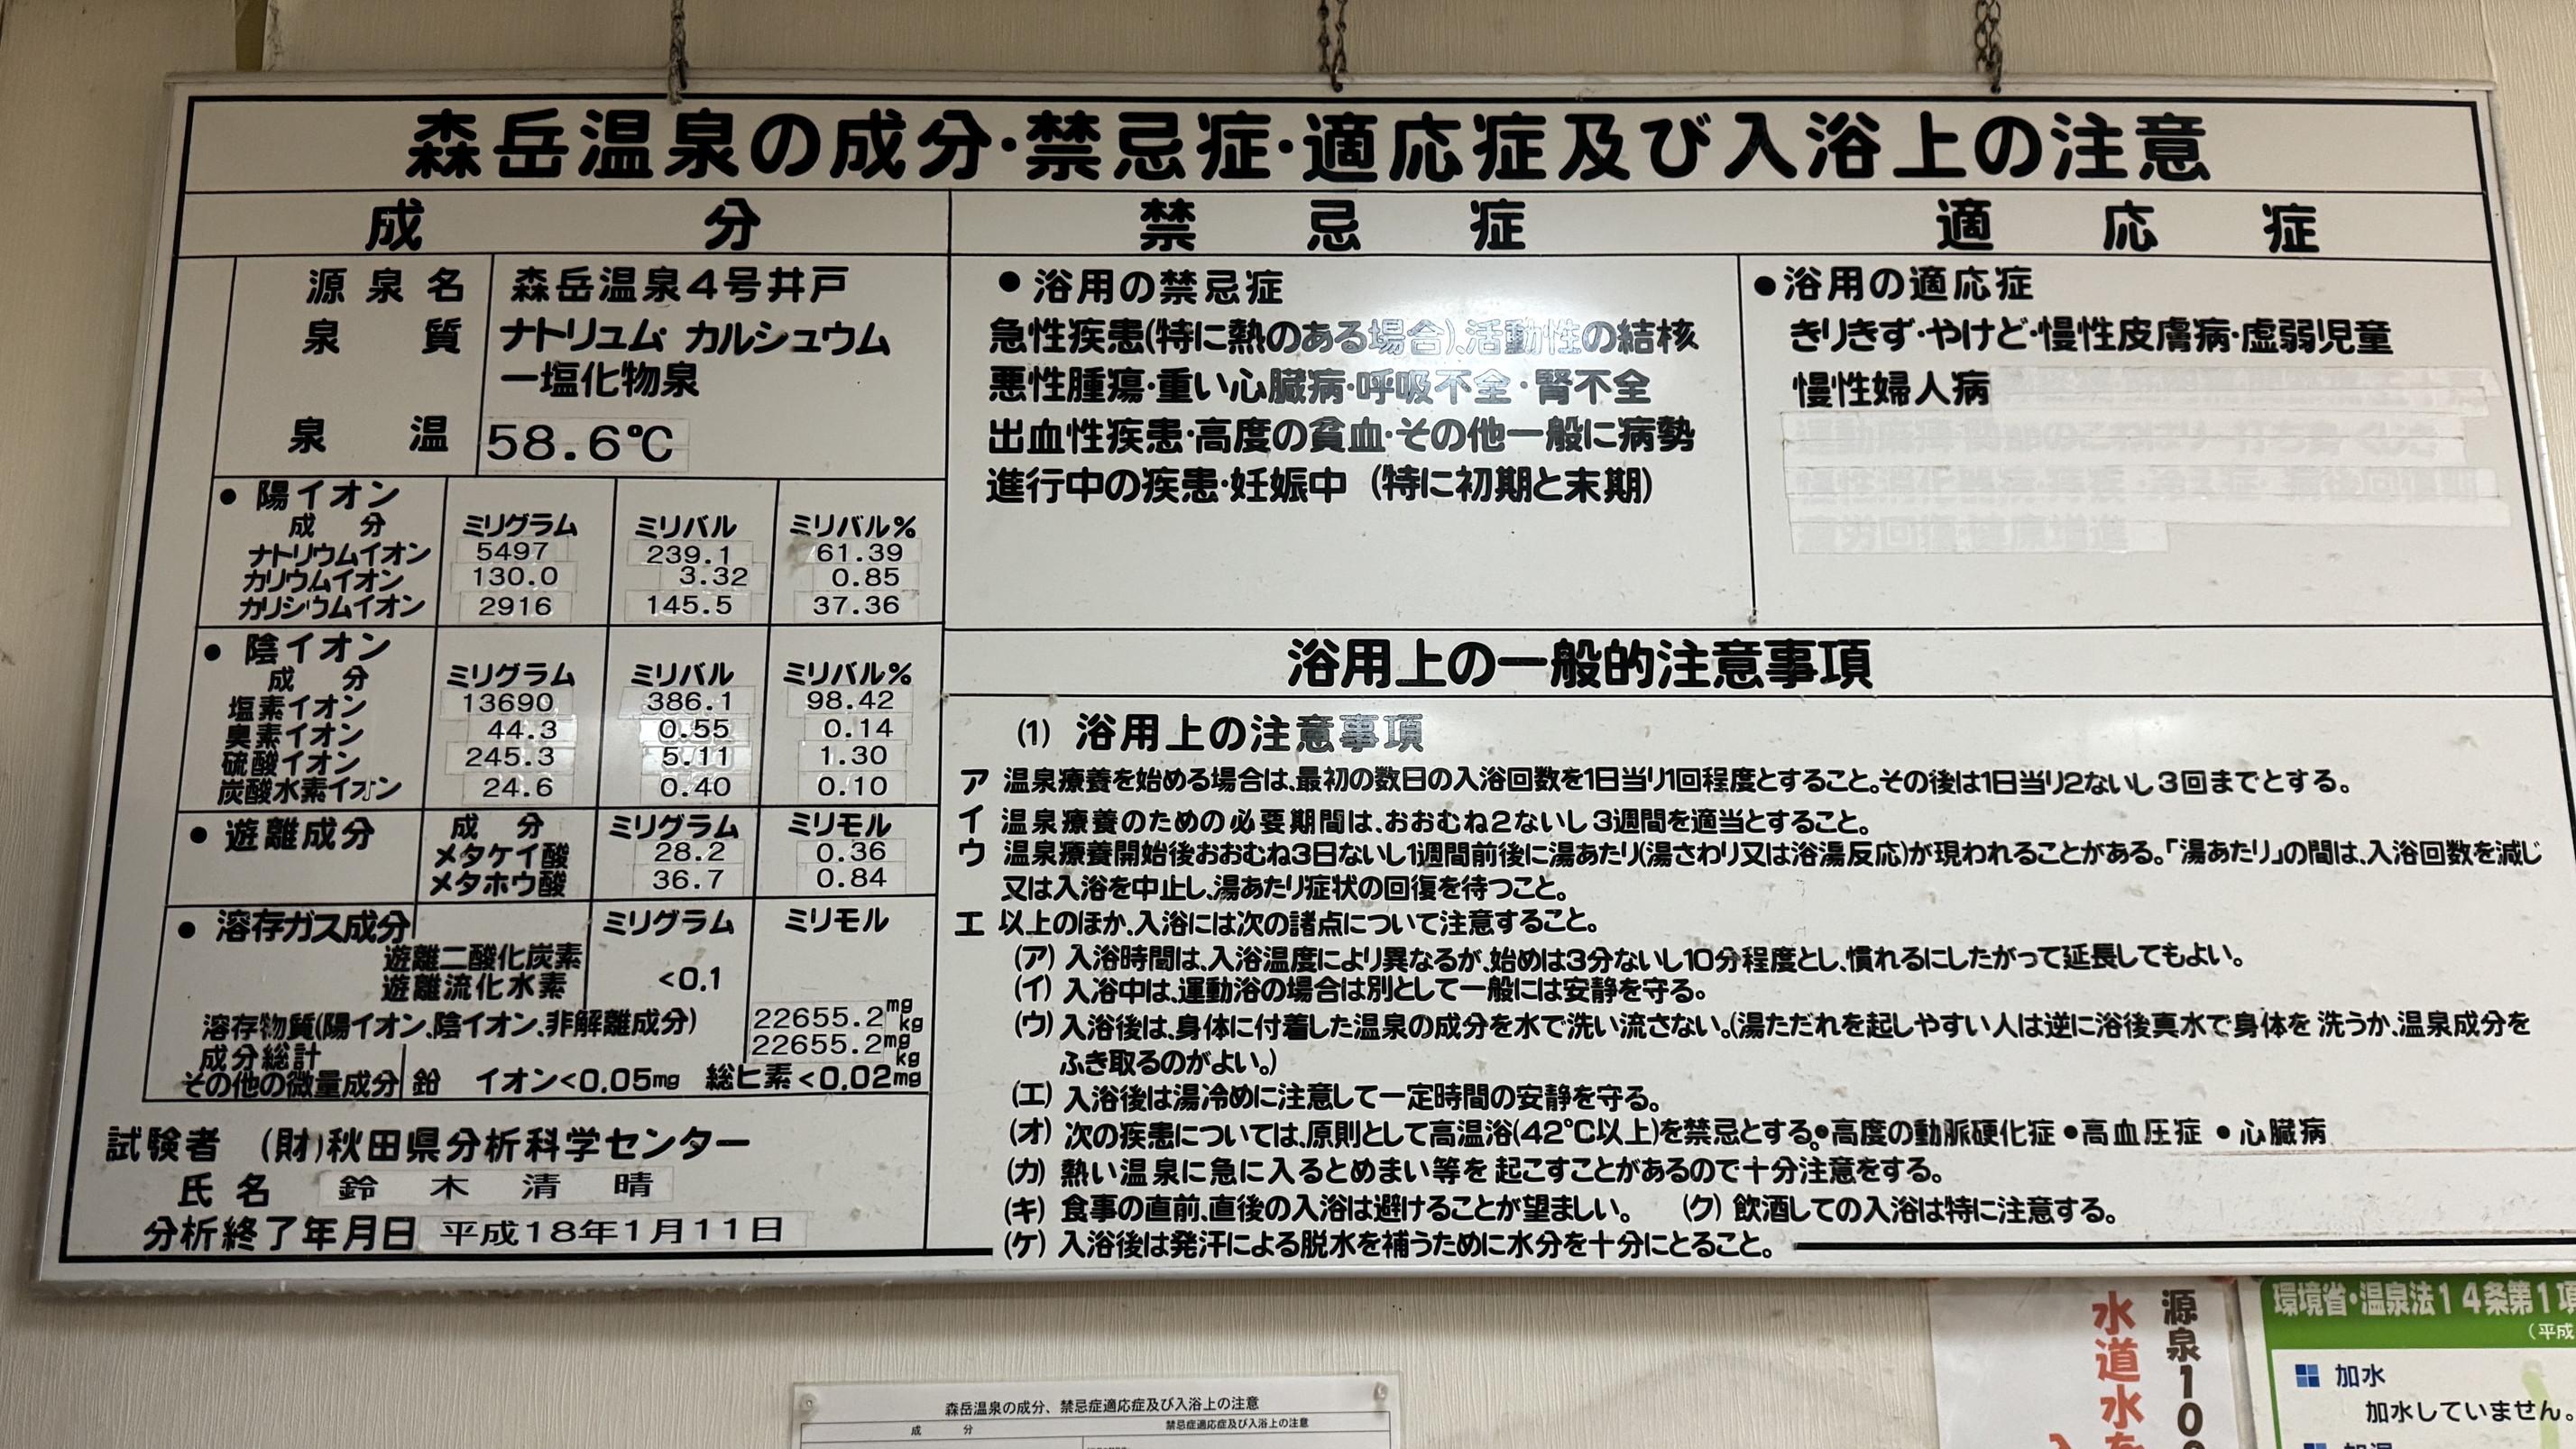 森岳温泉の成分・禁忌症・適応症及び入浴上の注意
成分
源泉名 森岳温泉4号井戸
泉質 ナトリュム カルシュウム
ー塩化物泉
泉温 58.6℃
●陽イオン
成分 ミリグラム ミリバル ミリバル%
ナトリウムイオン 5497 239.1 61.39
カリウムイオン 130.0 3.32 0.85
カリシウムイオン 2916 145.5 37.36
●陰イオン
成分 ミリグラム ミリバル ミリバル%
塩素イオン 13690 386.1 98.42
臭素イオン 44.3 0.55 0.14
硫酸イオン 245.3 5.11 1.30
炭酸水素イオン 24.6 0.40 0.10
●遊離成分 成分 ミリグラム ミリモル
メタケイ酸 28.2 0.36
メタホウ酸 36.7 0.84
●溶存ガス成分 ミリグラム ミリモル
遊離二酸化炭素
遊離流化水素 <0.1
溶存物質(陽イオン、陰イオン、非解離成分) 22655.2mg/kg
成分総計 22655.2mg/kg
その他の微量成分 鉛 イオン<0.05mg 総ヒ素<0.02mg
試験者 (財)秋田県分析科学センター
氏名 鈴木清晴
分析終了年月日 平成18年1月11日
禁忌症
●浴用の禁忌症
急性疾患(特に熱のある場合)、活動性の結核
悪性腫瘍・重い心臓病・呼吸不全・腎不全
出血性疾患・高度の貧血・その他一般に病勢
進行中の疾患・妊娠中 (特に初期と末期)
適応症
●浴用の適応症
きりきず・やけど・慢性皮膚病・虚弱児童
慢性婦人病
浴用上の一般的注意事項
(1) 浴用上の注意事項
ア 温泉療養を始める場合は、最初の数日の入浴回数を1日当り1回程度とすること。その後は1日当り2ないし3回までとする。
イ 温泉療養のための必要期間は、おおむね2ないし3週間を適当とすること。
ウ 温泉療養開始後おおむね3日ないし1週間前後に湯あたり(湯さわり又は浴湯反応)が現われることがある。「湯あたり」の間は、入浴回数を減じ
又は入浴を中止し、湯あたり症状の回復を待つこと。
エ 以上のほか、入浴には次の諸点について注意すること。
(ア) 入浴時間は、入浴温度により異なるが、始めは3分ないし10分程度とし、慣れるにしたがって延長してもよい。
(イ) 入浴中は、運動浴の場合は別として一般には安静を守る。
(ウ) 入浴後は、身体に付着した温泉の成分を水で洗い流さない。(湯ただれを起しやすい人は逆に浴後真水で身体を洗うか、温泉成分を
ふき取るのがよい。)
(エ) 入浴後は湯冷めに注意して一定時間の安静を守る。
(オ) 次の疾患については、原則として高温浴(42℃以上)を禁忌とする。●高度の動脈硬化症 ●高血圧症 ●心臓病
(カ) 熱い温泉に急に入るとめまい等を起こすことがあるので十分注意をする。
(キ) 食事の直前、直後の入浴は避けることが望ましい。 (ク) 飲酒しての入浴は特に注意する。
(ケ) 入浴後は発汗による脱水を補うために水分を十分にとること。
森岳温泉の成分、禁忌症適応症及び入浴上の注意
成分 禁忌症適応症及び入浴上の注意
源泉10
水道水を
環境省・温泉法14条第1項
(平成
加水
加水していません。